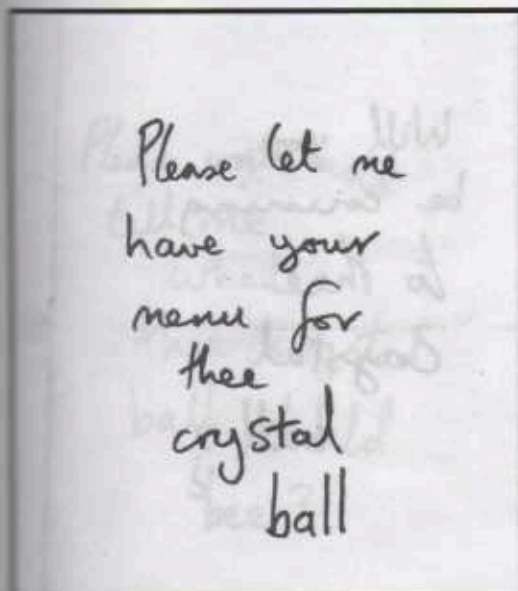 Please let me
have your
menu for
thee
crystal
ball